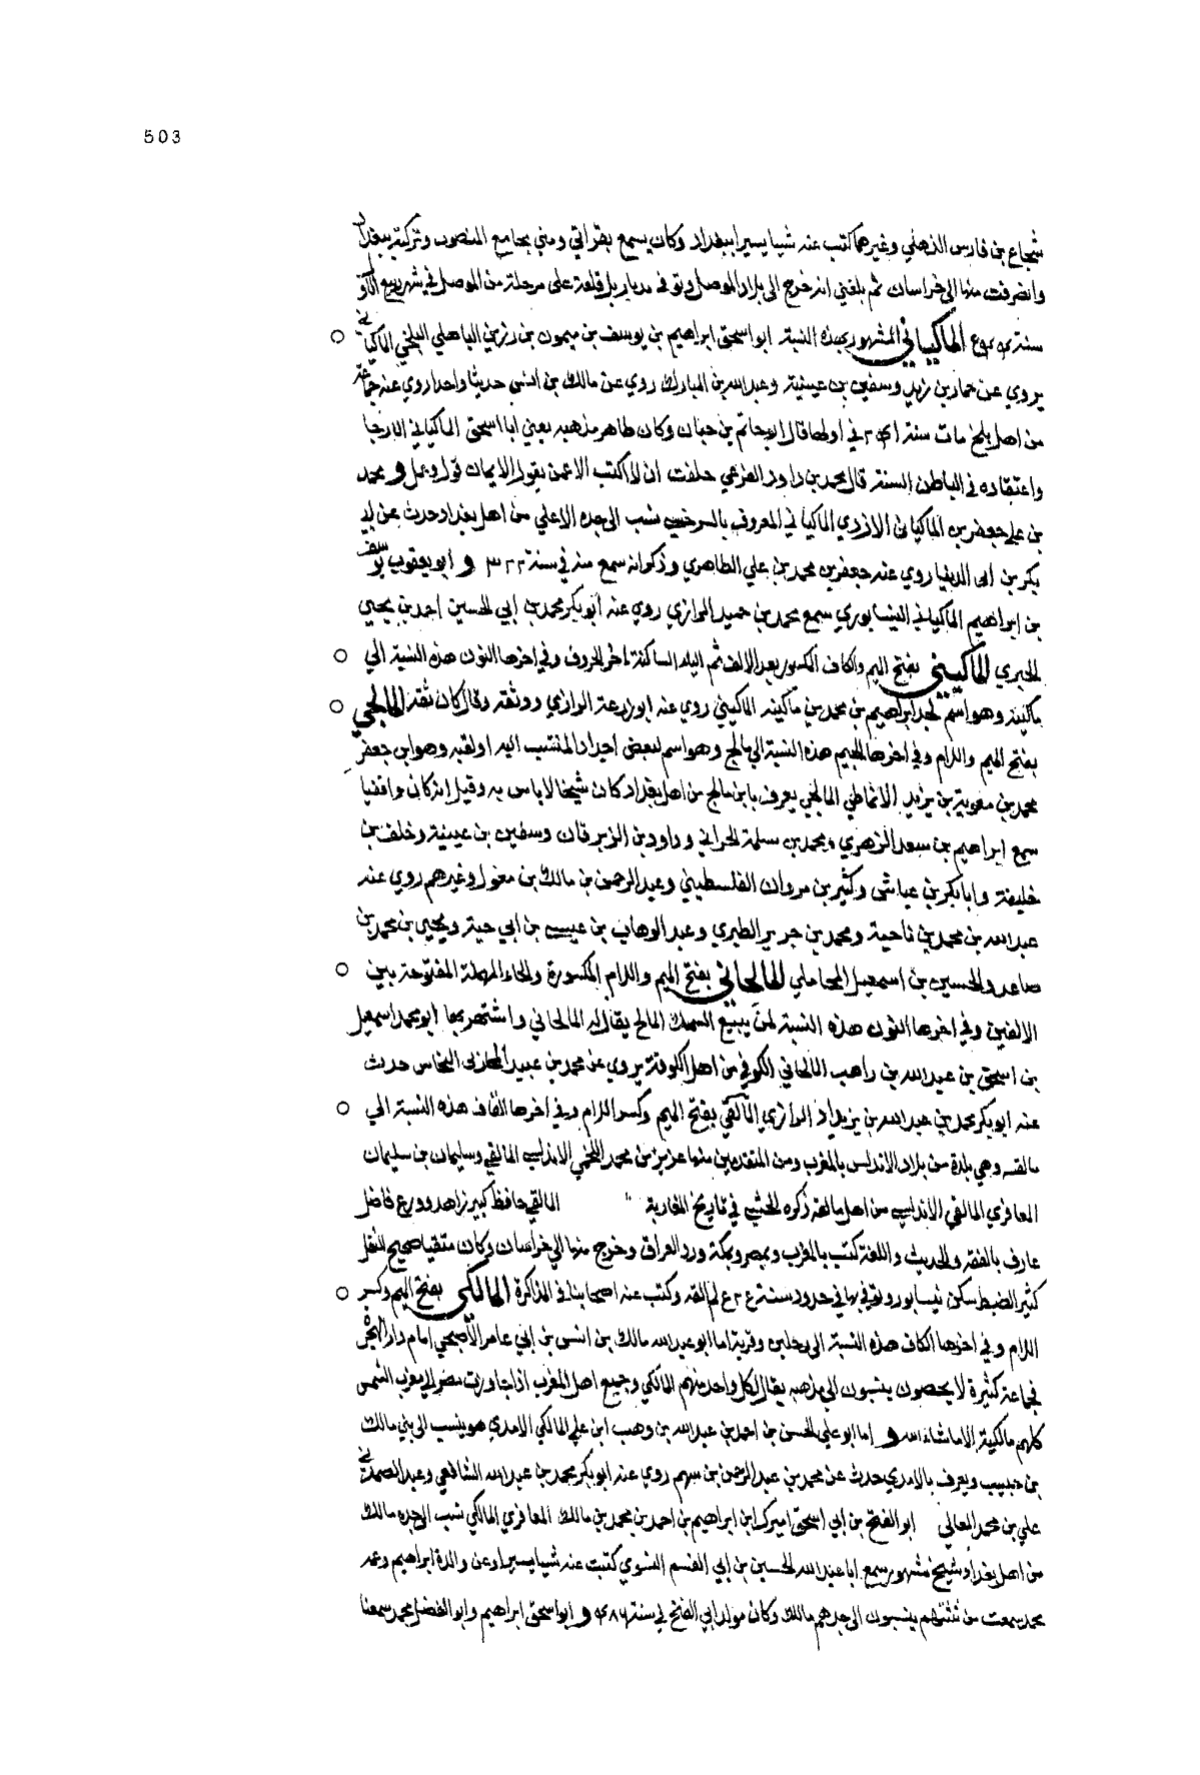 503
شجاع بن فارس الذهلي وغيرهما كتب عنه شيا يسيرا ببغداد وكان يسمع بقراتي ومني بجامع المنصور وتركته ببغداد
وانصرفت منها الى خراسان ثم بلغني انه خرج الى بلاد الموصل وتوفي قلعة على مرحلة من الموصل في شهر ربيع الاول
سنة الماكياني المشهور بهذه النسبة ابو اسحق ابراهيم بن يوسف بن ميمون بن رزين الباهلي البلخي الماكياني
يروي عن حماد بن زيد وسفين بن عيينة وعبد الله بن المبارك روي عن مالك بن انس حديثا واحدا روي عنه جماعة
من اهل بلخ مات سنة في اولها قال ابو حاتم بن حبان وكان ظاهر مذهبه يعني ابا اسحق الماكياني الارجا
واعتقاده في الباطن السنة قال محمد بن داود الفزعي حلفت ان لا اكتب الا عمن يقول الايمان قول وعمل و محمد
بن علي جعفر بن الماكياني الازدي الماكياني المعروف بالسرخسي نسب الى جده الاعلي من اهل بغداد حدث عن ابي
بكر بن ابى الدنيا روي عنه جعفر بن محمد بن علي الطاهري وذكر انه سمع منه في سنة ٣٢٢ و ابو يعقوب يوسف
بن ابراهيم الماكياني النيسابوري سمع محمد بن حميد الرازي روي عنه ابو بكر محمد بن ابي الحسين احمد بن يحيي
الحيري الماكيني بفتح الميم والكاف المكسور بعد الالف ثم الياء الساكنة اخر الحروف وفي اخرها النون هذه النسبة الي
ماكينه وهو اسم لجد ابراهيم بن محمد بن ماكينه الماكيني روي عنه ابو زرعة الرازي ووثقه وقال كان ثقة المالجي
بفتح الميم واللام وفي اخرها الجيم هذه النسبة الي مالج وهو اسم لبعض اجداد المنتسب اليه او لقبه وهو ابن جعفر
محمد بن معوية بن يزيد الانماطي المالجي يعرف بابن مالج من اهل بغداد كان شيخا لا باس به وقيل انه كان واقفيا
سمع ابراهيم بن سعد الزهري ومحمد بن سلمة الحراني وداود بن الزبرقان وسفين بن عيينة وخلف بن
خليفة وابا بكر بن عياش وكثير بن مروان الفلسطيني وعبد الرحمن بن مالك بن مغول وغيرهم روي عنه
عبد الله بن محمد بن ناجية ومحمد بن جرير الطبري وعبد الوهاب بن عيسى بن ابي حية ويحيي بن محمد بن
صاعد والحسين بن اسمعيل المحاملي المالحاني بفتح الميم واللام المكسورة والحاء المهملة المفتوحة بين
الالفين وفي اخرها النون هذه النسبة لمن يبيع السمك المالح يقال له المالحاني واشتهر بها ابو محمد اسمعيل
بن اسحق بن عبد الله بن راهب المالحاني الكوفي من اهل الكوفة يروي عن محمد بن عبيد المحاربى النحاس حدث
عنه ابو بكر محمد بن عبد الله بن يزداد الرازي المالقي بفتح الميم وكسر اللام وفي اخرها القاف هذه النسبة الي
مالقه وهي بلدة من بلاد الاندلس بالمغرب ومن المتقدمين منها عزيز بن محمد اللخمي الاندلسي المالقي وسليمان بن سليمان
المعافري المالقي الاندلسي من اهل مالقه ذكره الخشني في تاريخ المغاربة المالقي حافظ كبير زاهد وورع فاضل
عارف بالفقه والحديث واللغة كتب بالمغرب وبمصر وبمكة ورد العراق وخرج منها الى خراسان وكان متقيا صحيح النقل
كثير الضبط سكن نيسابور وتوفي بها في حدود سنة وكتب عنه اصحابنا في المذاكرة المالكي بفتح الميم وكسر
اللام وفي اخرها الكاف هذه النسبة الى رجلين وقرية اما ابو عبد الله مالك بن انس بن ابي عامر الاصبحي امام دار الهجرة
فجماعة كثيرة لا يحصون ينتسبون الى مذهبه يقال لكل واحد منهم المالكي وجميع اهل المغرب اذا جاوزت مصر الي مغرب الشمس
كلهم مالكية الا ما شاء الله و اما ابو علي الحسن بن احمد بن عبد الله بن وهب ابن علي المالكي الامدي هو ينسب الى بني مالك
بن حبيب ويعرف بالامدي حدث عن محمد بن عبد الرحمن بن سهم روي عنه ابو بكر محمد بن عبد الله الشافعي وعبد الصمد بن
علي بن محمد المعالي ابو الفتح بن ابي اسحق اميرك ابن ابراهيم بن احمد بن محمد بن مالك المعافري المالكي نسب الى جده مالك
من اهل بغداد شيخ مشهور سمع ابا عبد الله الحسين بن ابي القسم النسوي كتبت عنه شيا يسيرا وعن والده ابراهيم وعمه
محمد سمعت من ثلثتهم ينتسبون الى جدهم مالك وكان مولد ابي الفتح في سنة و ابو اسحق ابراهيم وابو الفضل محمد سمعنا